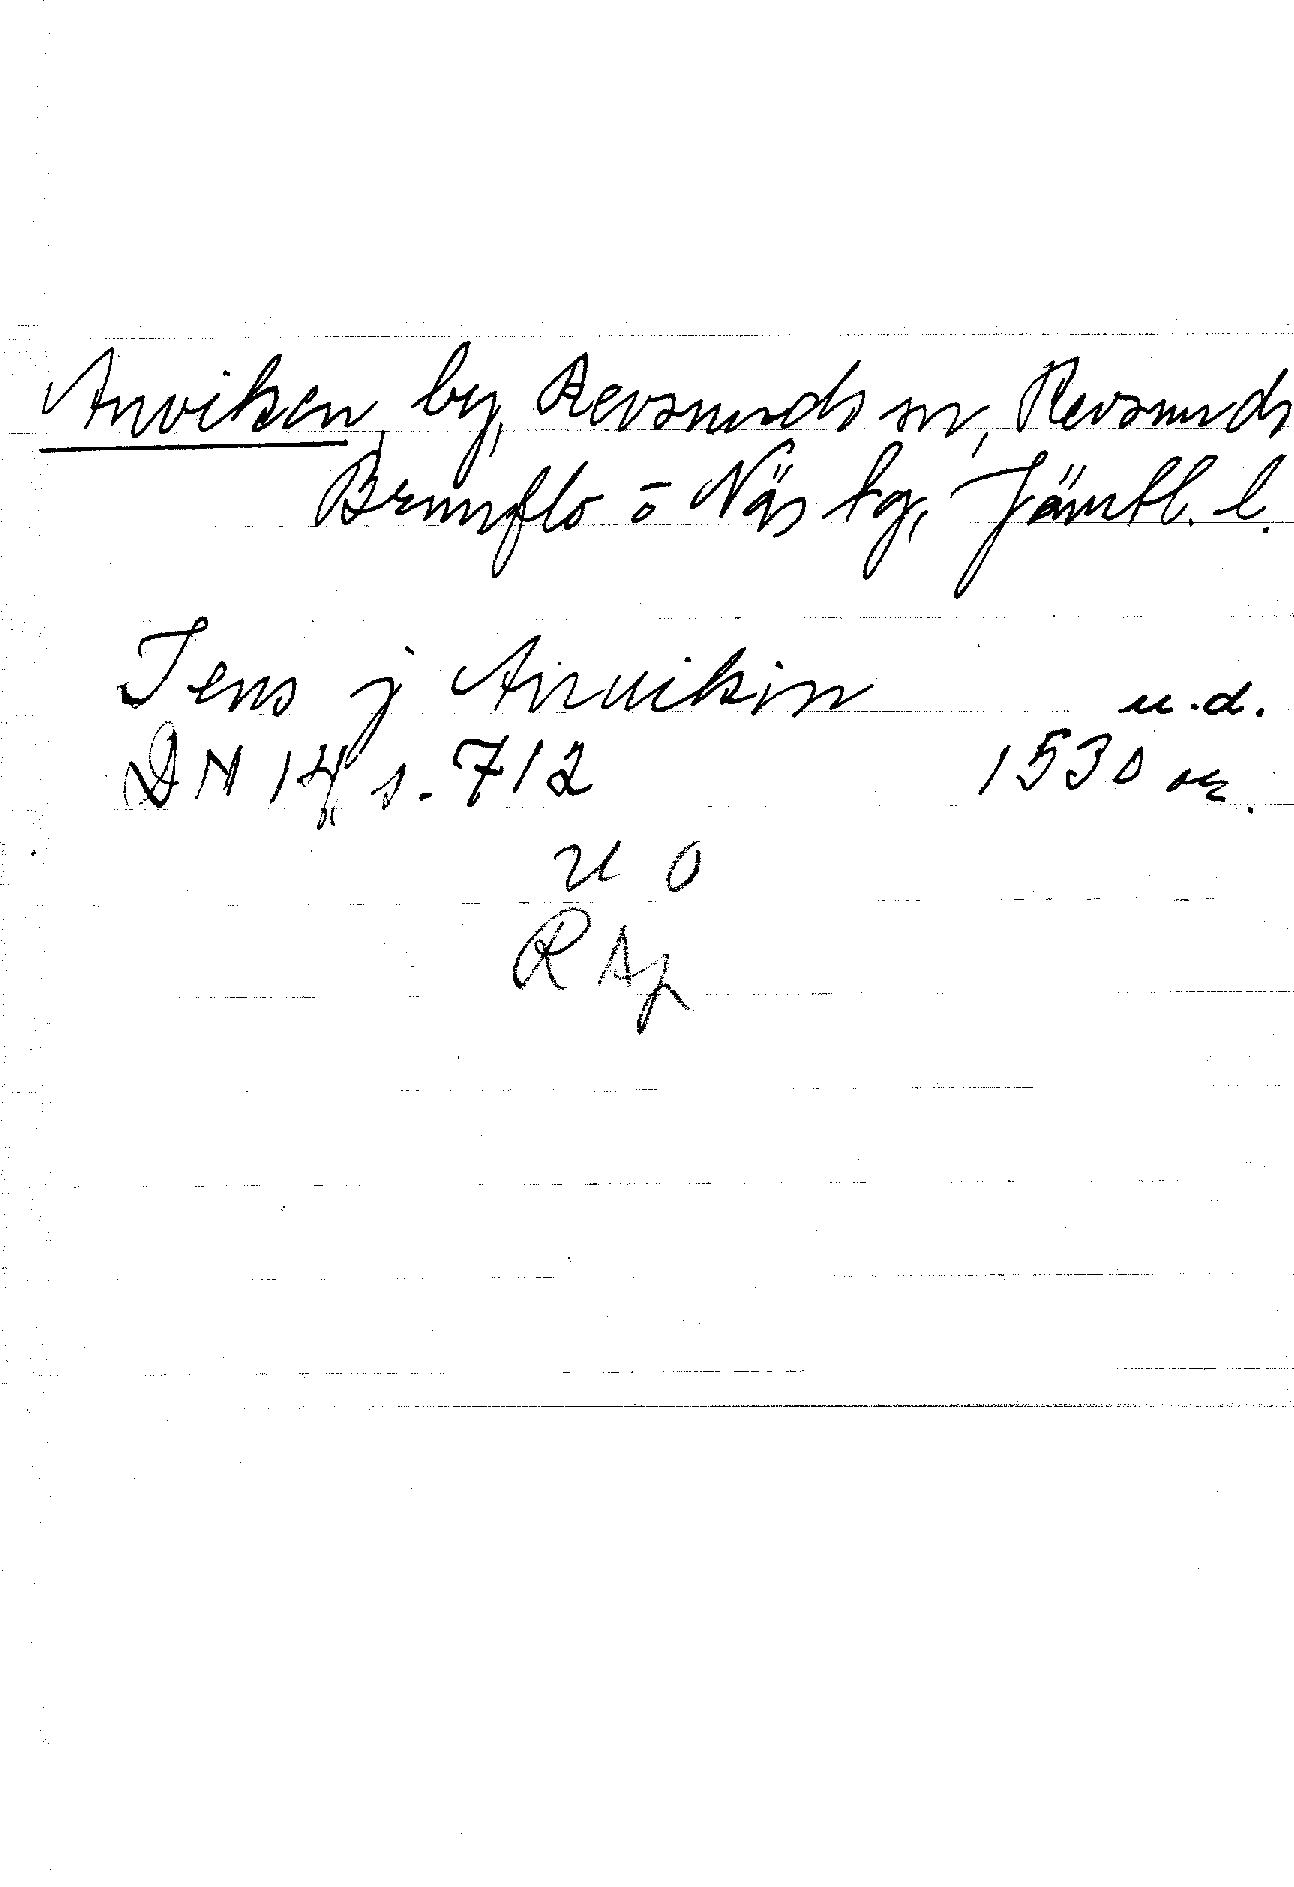 Anviken, by, Revsunds sn, Revsunds
Brunflo o Näs tg, Jämtl. l.
Jens j Anuikin u.d.
DN 14, s. 712 1530 
u o
RAp